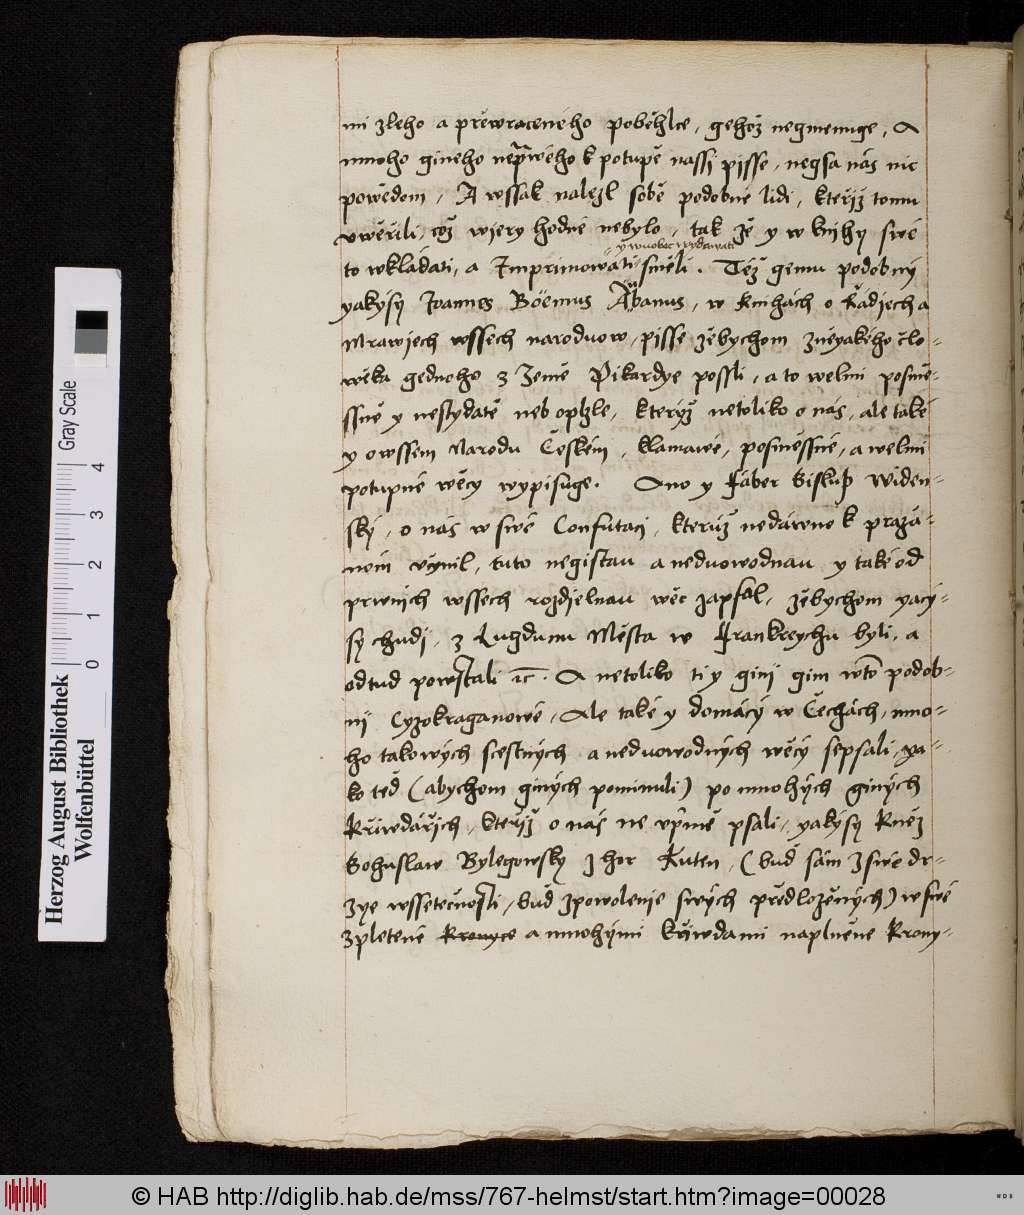 mi zleho a přewraceného poběhlce, gehož negmenuge, A
mnoho gineho neprawého k potupě nassi pisse, negsa nás nic
powědom, A wssak nalezl sobě podobné lidi, kteřiž tomu
uwěřili, což wiery hodné nebylo, tak že y w knihy swé
y wuobec wydawati
to wkládati, a Imprimowati směli. Též gemu podobný
yakýsy Joannes Böemus Aubanus, w Knihách o Řádiech a
Mrawiech wssech naroduow, pisse žebychom z néyakého člo-
wěka gednoho z Země Pikardye possli, a to welmi posmě-
ssně y nestydatě neb oplzle, kterýž netoliko o nás, ale také
y owssem Narodu Českém, klamawé, posměssné, a welmi
potupné wěcy wypisuge. Ano y Fáber Biskup Widen-
ský, o nás w swé Confutaci, kterúž nedáwno k pražá-
nóm učynil, tuto negistau a neduowodnau y také od
prwnich wssech rozdielnau wěc zapsal, žebychom yacy-
sy chudi, z Lugdunu Města w Frankreychu byli, a
odtud powstali ꝛc. A netoliko ti y gini gim w to podob-
nij Cyzokraganowé, Ale také y domácý w Čechách, mno-
ho takowých scestných a neduowodných wěcý sepsali, ya-
ko teď (abychom giných pominuli) po mnohých giných
Křiwdářich, kteřiž o nás ne upřmě psali, yakýsy Kněz
Bohuslaw Bylegowsky z hor Kuten, (buď sám z swé dr-
zye wssetečnosti, buď z powolenie swých předložených) w swé
zpletené Kronyce a mnohými křiwdami naplněné Krony-
Herzog August Bibliothek
Wolfenbüttel
0 1 2 3 4
Gray Scale
© HAB http://diglib.hab.de/mss/767-helmst/start.htm?image=00028
WDB